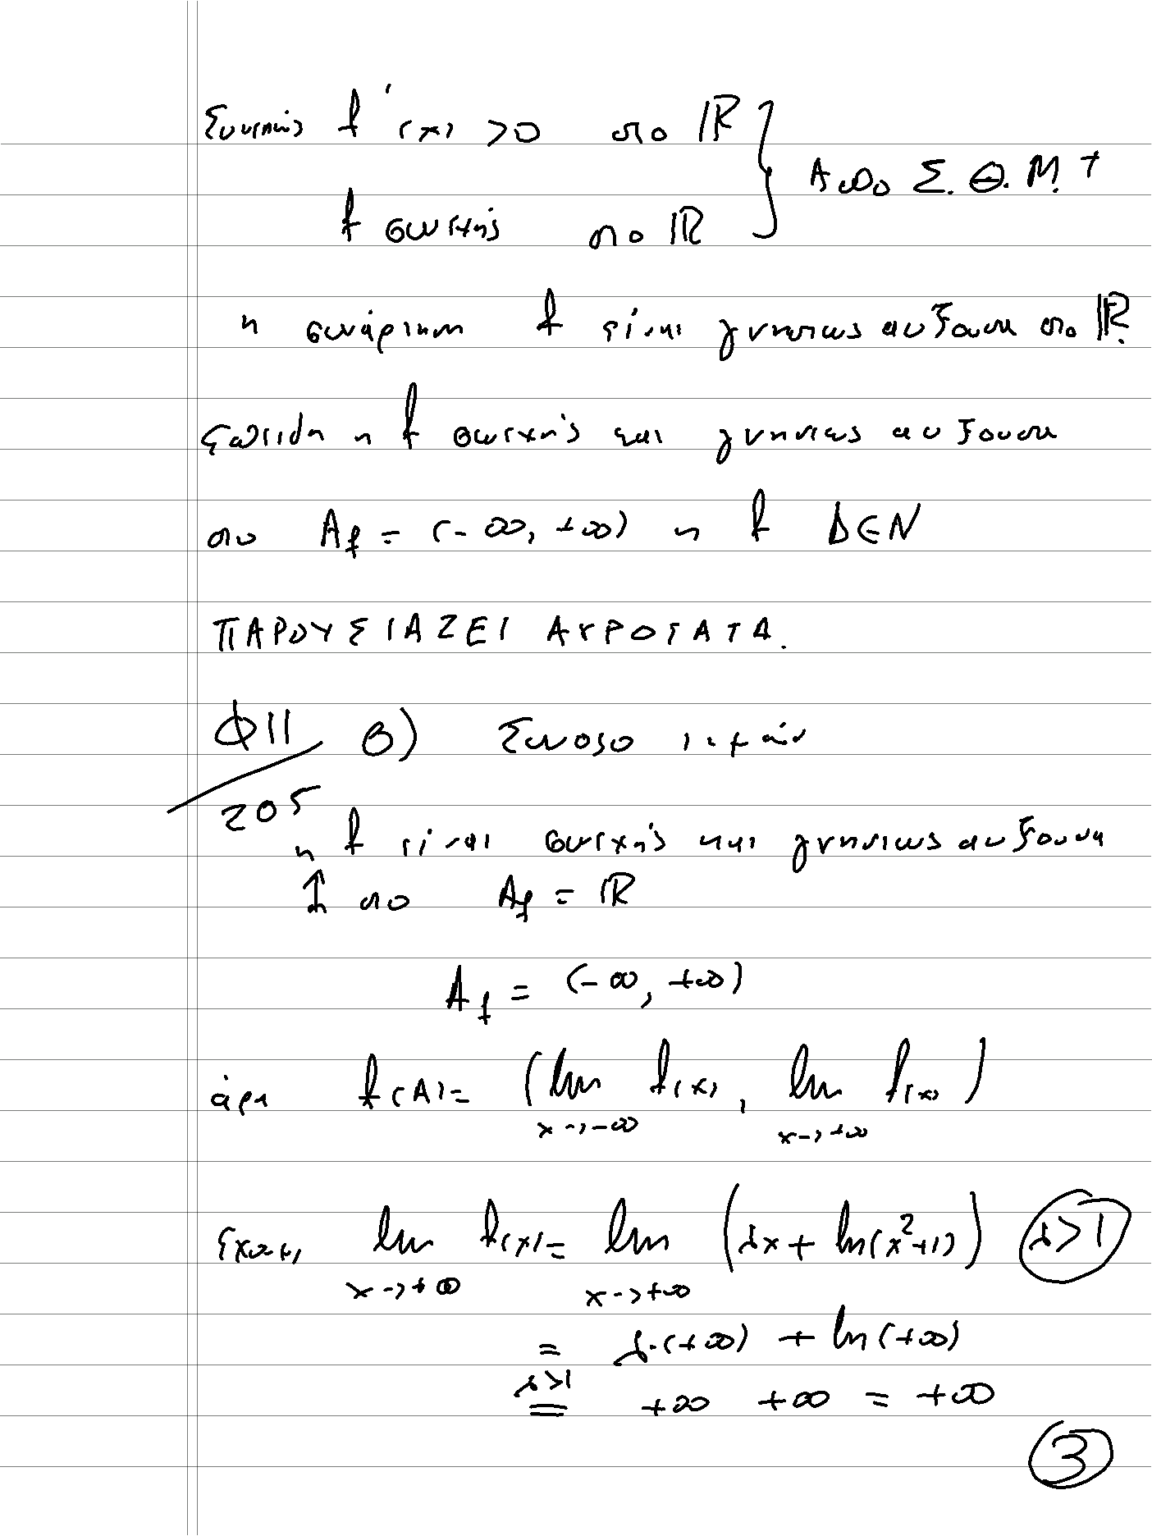 Συνεπώς f'(x) > 0 στο ℝ
f συνεχής στο ℝ } Από Σ.Θ.Μ.Τ
η συνάρτηση f είναι γνησίως αύξουσα στο ℝ.
Επειδή η f συνεχής και γνησίως αύξουσα
στο A_f = (-∞, +∞) η f ΔΕΝ
ΠΑΡΟΥΣΙΑΖΕΙ ΑΚΡΟΤΑΤΑ.
Φ11/205 β) Σύνολο τιμών
η f είναι συνεχής και γνησίως αύξουσα
↑ στο A_f = ℝ
A_f = (-∞, +∞)
άρα f(A) = (lim x→-∞ f(x), lim x→+∞ f(x))
έχουμε lim x→+∞ f(x) = lim x→+∞ (λx + ln(x²+1)) λ>1
= λ·(+∞) + ln(+∞)
λ>1 = +∞ +∞ = +∞
3